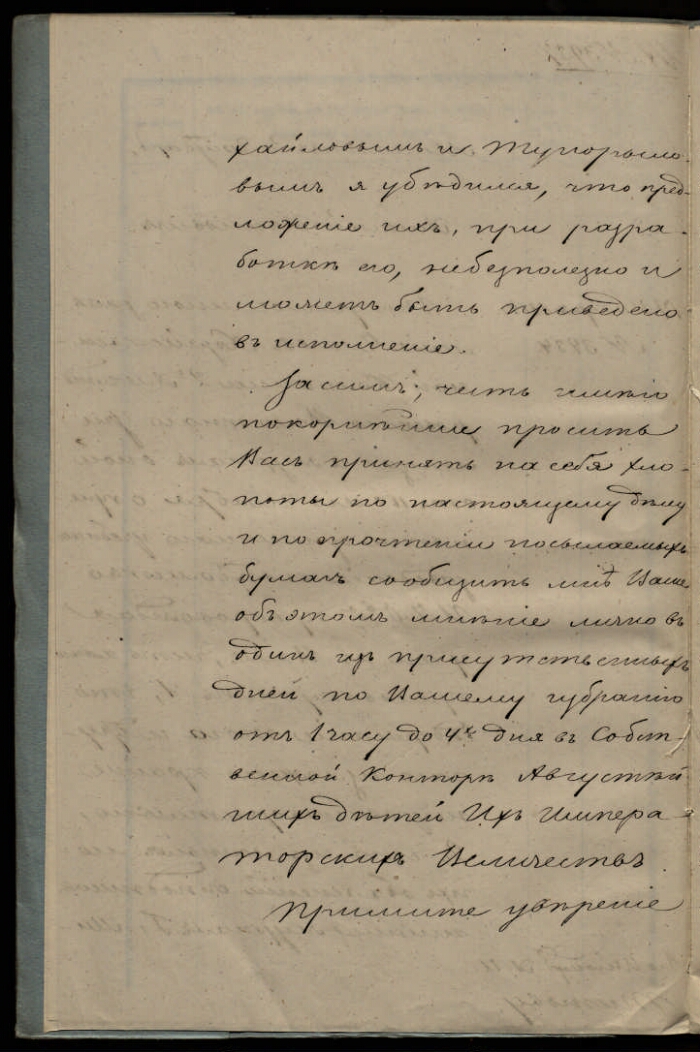 хайловымъ и Тупорыло-
вымъ я убѣдился, что пред-
ложеніе ихъ, при разра-
боткѣ его, небезполезно и
можетъ быть приведено
въ исполненіе.
За симъ, честь имѣю
покорнѣйше просить
Васъ принять на себя хло-
поты по настоящему дѣлу
и по прочтеніи посылаемыхъ
бумагъ сообщить мнѣ Ваше
объ этомъ мнѣніе лично въ
одинъ изъ присутственныхъ
дней по Вашему избранію
отъ 1 часу до 4х дня въ Собст-
венной Конторѣ Августѣй
шихъ дѣтей Ихъ Импера-
торскихъ Величествъ.
Примите увѣреніе